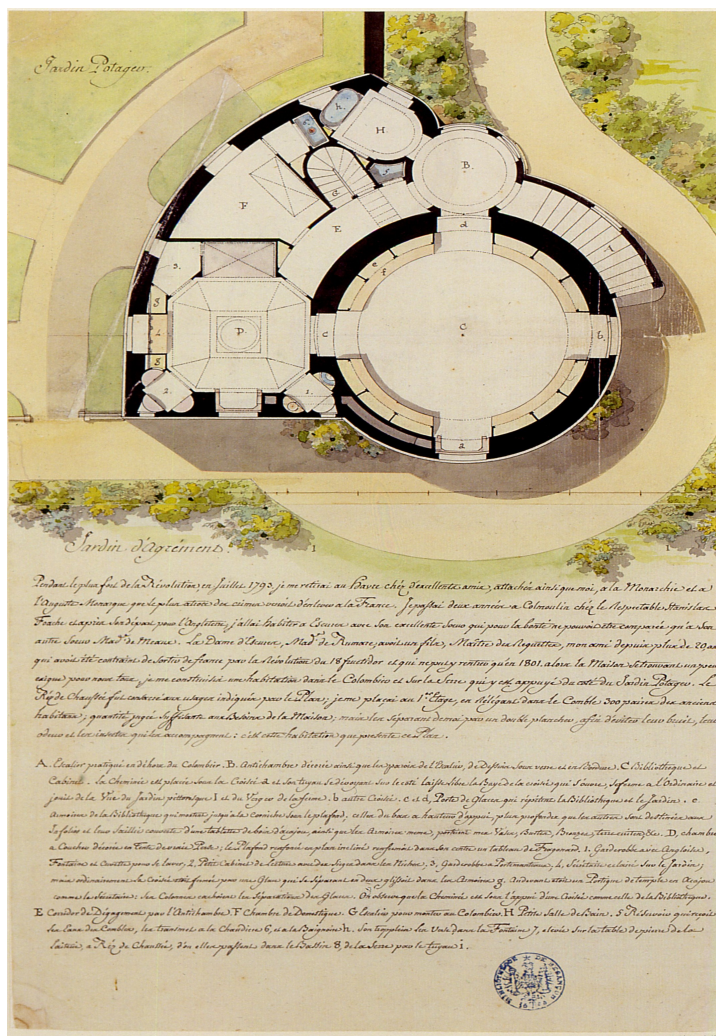 Jardin Potager.
h.
H.
B.
G
F
E
d
A
3.
e
f
g
4
D.
c
C
b
g
2.
1.
a
Jardin d'agrément.
1
1
Pendant le plus fort de la Révolution, en Juillet 1793, je me retirai au Havre chez d'excellents amis, attachés ainsi que moi, a la Monarchie et a
l'Auguste Monarque que le plus atroce des crimes venoit d'enlever a la France. Je passai deux années a Colmoulin chez le Respectable Stanislas
Foache et après son départ pour l'Angleterre, j'allai habiter a Escures avec Son excellente Soeur qui pour la bonté ne pouvoit être comparée qu'a Son
autre Soeur Mad.e de Meaux. La Dame d'Escures, Mad.e de Rumare, avoit un fils, Maître des Requettes, mon ami depuis plus de 20 ans
qui avoit été contraint de Sortir de france par la Révolution du 18 fructidor et qui ne put y rentrer qu'en 1801. alors la Maison Se trouvant un peu
exigue pour nous tous, je me construisis une habitation dans le Colombier et Sur la Serre qui y est appuyé du coté du Jardin Potager. Le
Réz de Chaussée fut consacré aux usages indiqués par le Plan; je me plaçai au 1.er Etage, en réléguant dans le Comble 300 paires des anciens
habitans; quantité jugée Suffisante aux Besoins de la Maison; mais les Séparant de moi par un double plancher, afin d'éviter leur bruit, leur
odeur et les insectes qui les accompagnent: c'est cette habitation que présente ce Plan.
A. Escalier pratiqué en dehors du Colombier. B. Antichambre décorée ainsi que les parois de l'Escalier, de Dessins Sous verre et en Bordure. C Bibliothèque et
Cabinet. La Cheminée est placée Sous la Croisée a et Son tuyau Se divoyant Sur le coté laisse libre la Baye de la croisée qui S'ouvre, Se ferme a l'Ordinaire et
jouit de la Vue du Jardin pittoresque 1 et du Verger de la ferme. b autre Croisée. c et d, Porte de Glaces qui répétent la Bibliothèque et le Jardin. e
Armoires de la Bibliothèque qui montent jusqu'a la Corniche Sous le plafond, celles du bas a hauteur d'appuy, plus profondes que les autres Sont destinées aux
In folios et leurs Saillies couvertes d'une tablette de bois d'acajou, ainsi que les Armoires même, portent mes Vases, Bustes, Bronzes, terres cuites &c. D, chambre
a Coucher décorée en Tente de vraie Perse; le Plafond renfoncé en plan incliné renfermé dans Son centre un tableau de Fragonard. 1. Garderobe avec Anglaise,
Fontaine et Cuvette pour Se laver, 2, Petit Cabinet de Lecture avec des Sieges dans les Niches, 3, Garderobe a Portemanteau, 4, Secrétaire éclairé Sur le Jardin;
mais ordinairement la Croisée étoit fermée par une Glace qui Se Séparant en deux glissoit dans les Armoires g. Audevant étoit un Portique de temple en Acajou
comme le Secrétaire; Ses Colonnes cachoient les Séparations des Glaces. On observe que la Cheminée est Sous l'appui d'une Croisée comme celle de la Bibliothèque.
E Corridor de Dégagement par l'Antichambre. F Chambre de Domestique. G Escalier pour monter au Colombier. H Petite Salle de Bain. 5 Réservoir qui reçoit
les Eaux des Combles, les transmet a la Chaudiere 6, et a la Baignoire h.